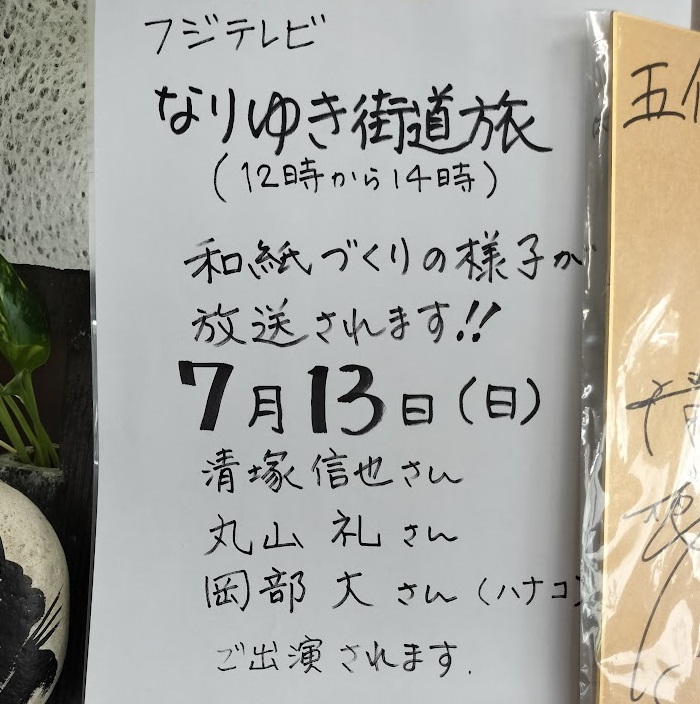 フジテレビ
なりゆき街道旅
(12時から14時)
和紙づくりの様子か
放送されます!!
7月13日(日)
清塚信也さん
丸山 礼さん
岡部 大さん(ハナコ)
ご出演されます.
五